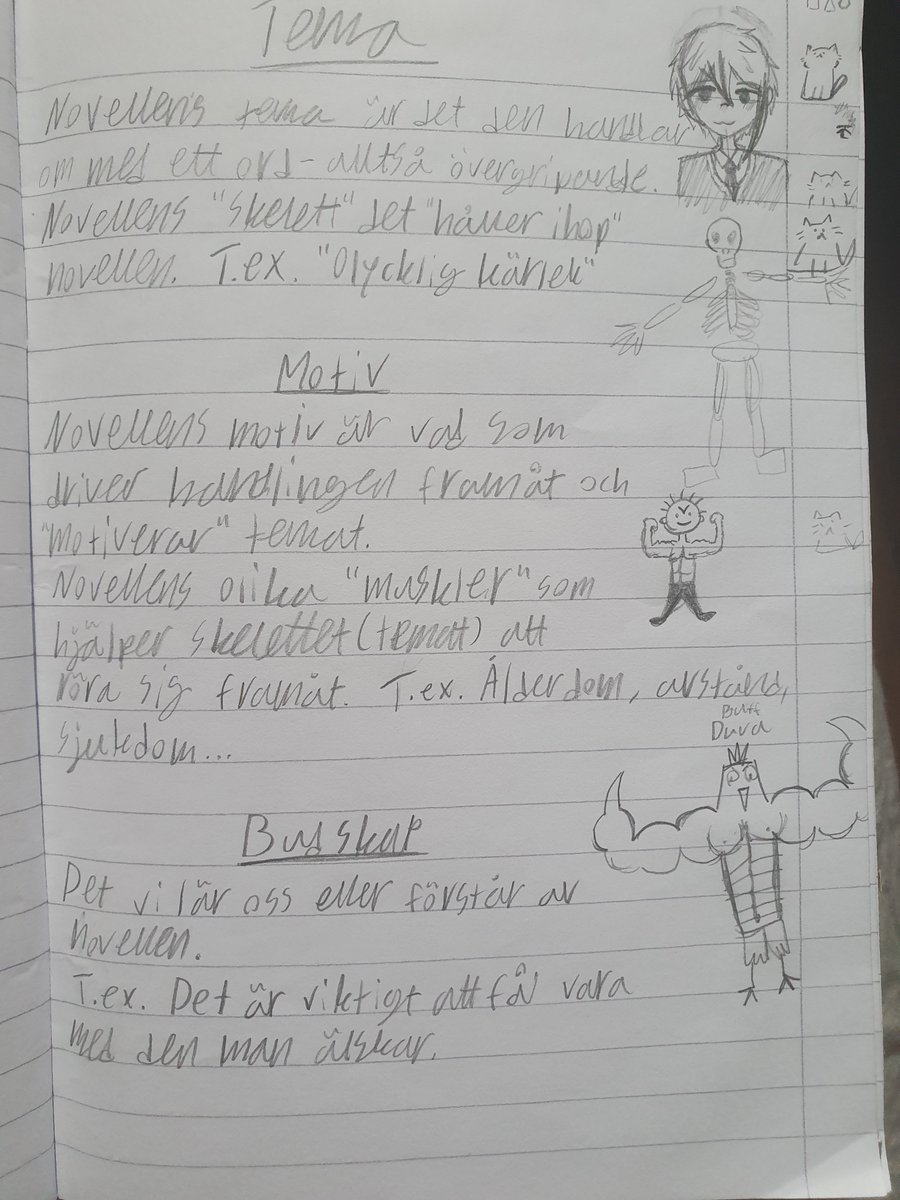 Tema
Novellens tema är det den handlar
om med ett ord - alltså övergripande.
Novellens "skelett" det "håller ihop"
novellen. T.ex. "Olycklig kärlek"
Motiv
Novellens motiv är vad som
driver handlingen framåt och
"motiverar" temat.
Novellens olika "muskler" som
hjälper skelettet (temat) att
röra sig framåt. T.ex. Ålderdom, avstånd,
sjukdom...
Buff
Duva
Budskap
Det vi lär oss eller förstår av
novellen.
T.ex. Det är viktigt att få vara
med den man älskar.